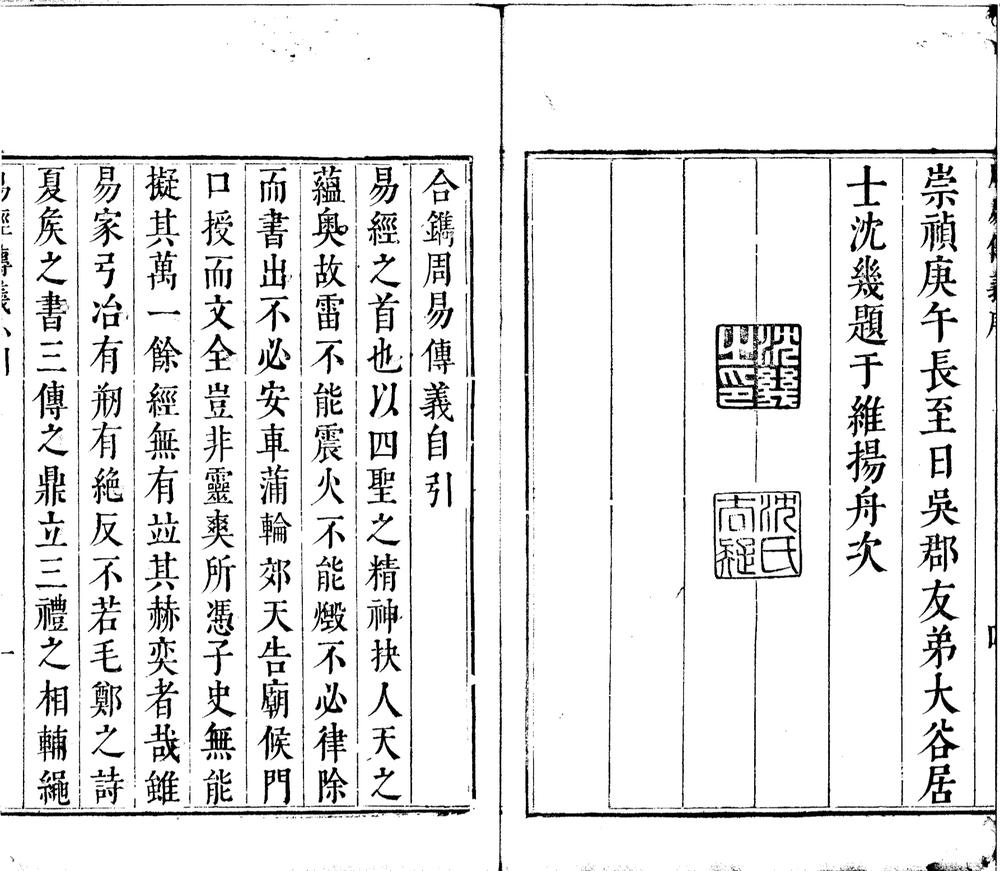 崇禎庚午長至日吳郡友弟大谷居
士沈幾題于維揚舟次
沈幾
之印
沈氏
合鐫周易傳義自引
易經之首也以四聖之精神抉人天之
蘊奥故雷不能震火不能燬不必律除
而書出不必安車蒲輪郊天告廟候門
口授而文全豈非靈爽所憑子史無能
擬其萬一餘經無有竝其赫奕者哉雖
易家弓冶有剏有絶反不若毛鄭之詩
夏矦之書三傳之鼎立三禮之相輔繩
易經傳義小引
一